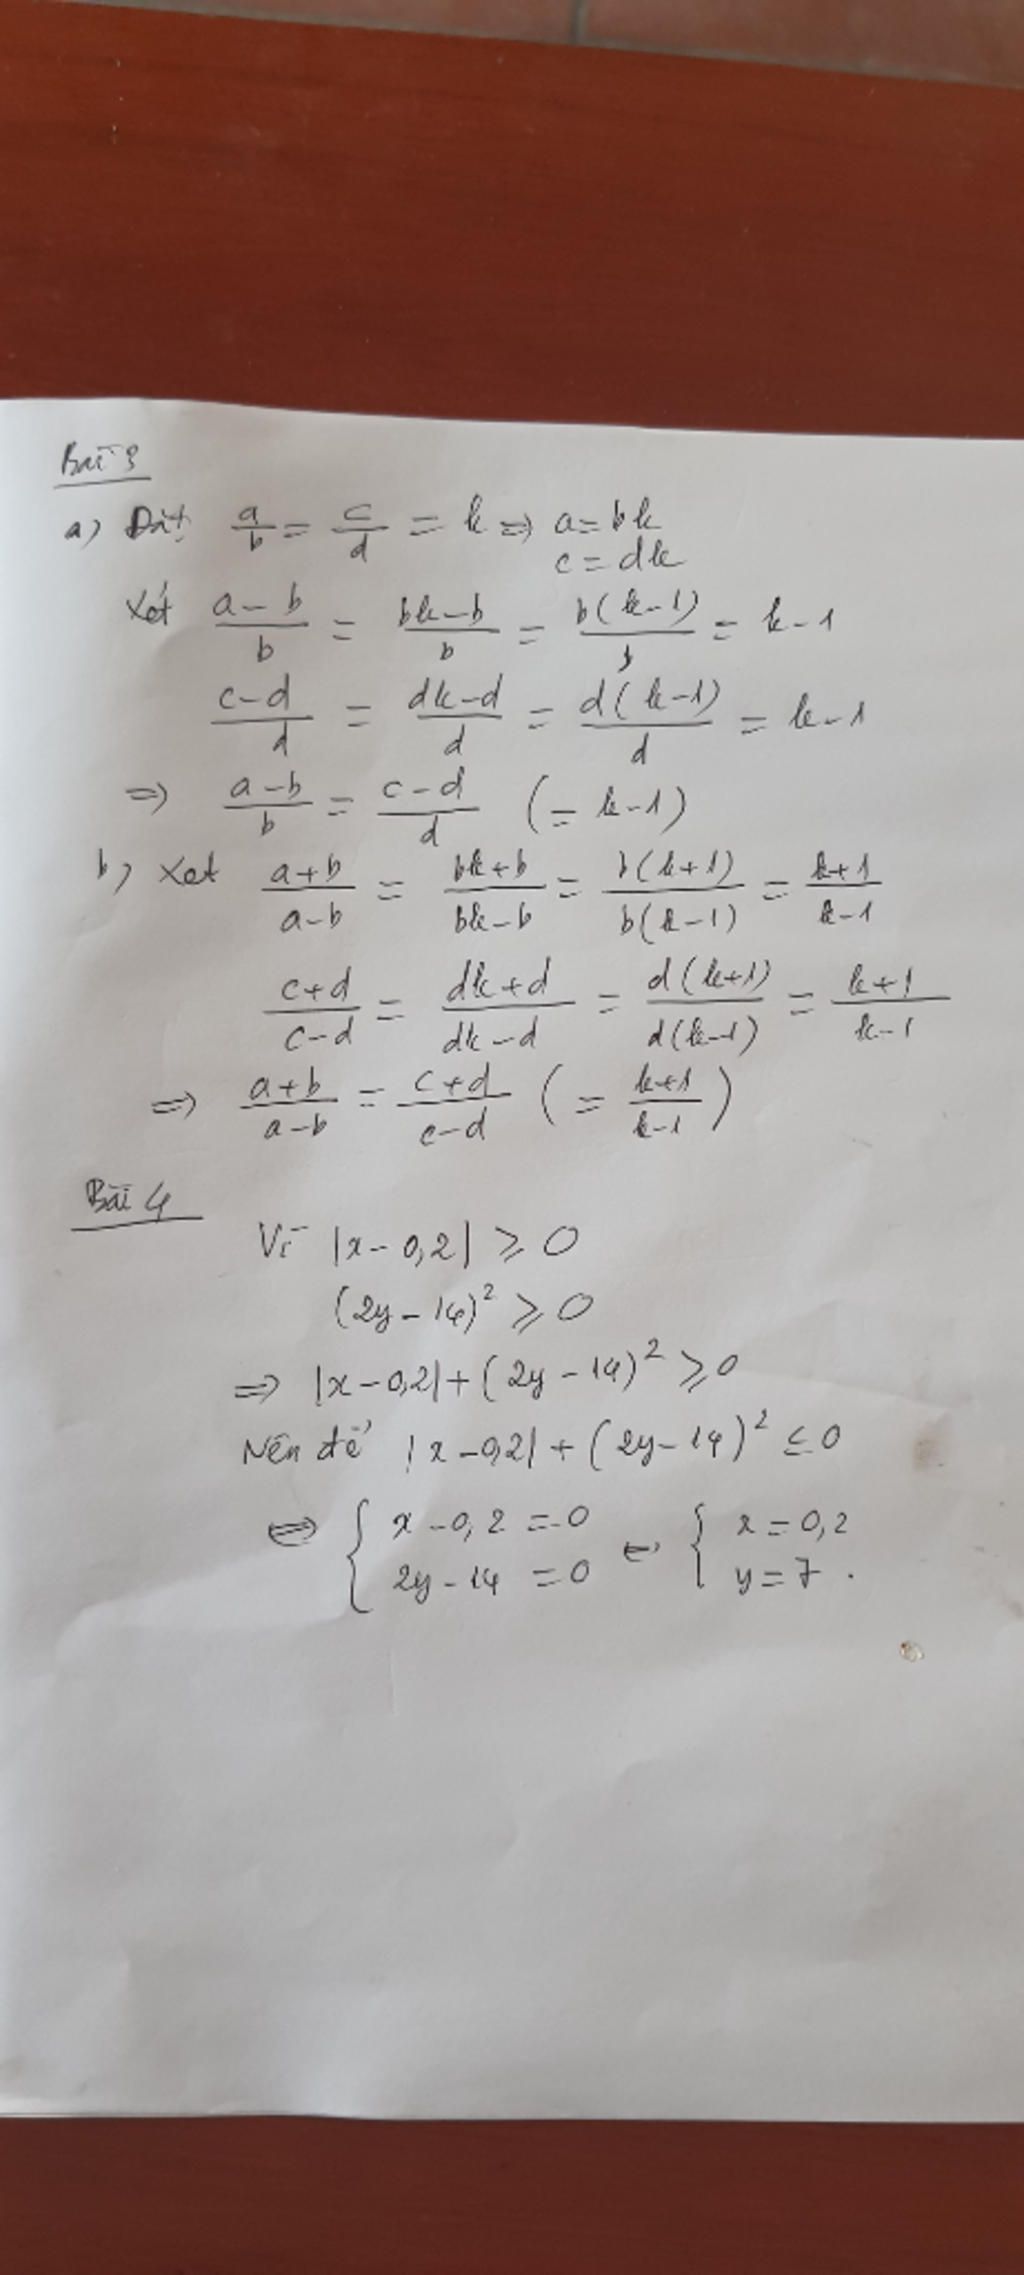 Bài 3
a) Đặt a/b = c/d = k => a = bk
c = dk
Xét (a-b)/b = (bk-b)/b = b(k-1)/b = k-1
(c-d)/d = (dk-d)/d = d(k-1)/d = k-1
=> (a-b)/b = (c-d)/d (= k-1)
b) Xet (a+b)/(a-b) = (bk+b)/(bk-b) = b(k+1)/b(k-1) = (k+1)/(k-1)
(c+d)/(c-d) = (dk+d)/(dk-d) = d(k+1)/d(k-1) = (k+1)/(k-1)
=> (a+b)/(a-b) = (c+d)/(c-d) (= (k+1)/(k-1))
Bài 4
Vì |x-0,2| ⩾ 0
(2y-14)² ⩾ 0
=> |x-0,2| + (2y-14)² ⩾ 0
Nên để |x-0,2| + (2y-14)² ≤ 0
<=> { x-0,2 = 0 <=> { x = 0,2
2y-14 = 0 y = 7.